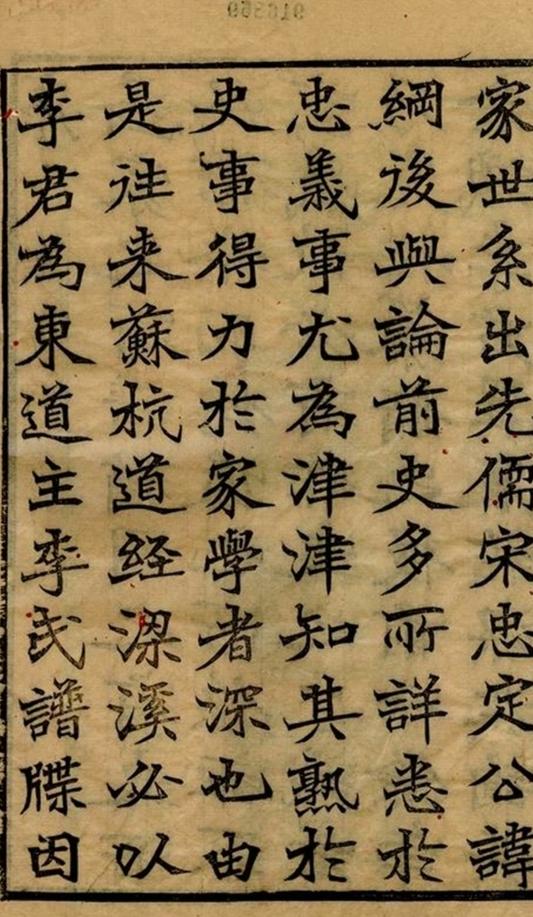 家世系出先儒宋忠定公諱
綱後與論前史多所詳悉於
忠義事尤為津津知其熟於
史事得力於家學者深也由
是徃来蘇杭道経梁溪必以
李君為東道主李氏譜牒因